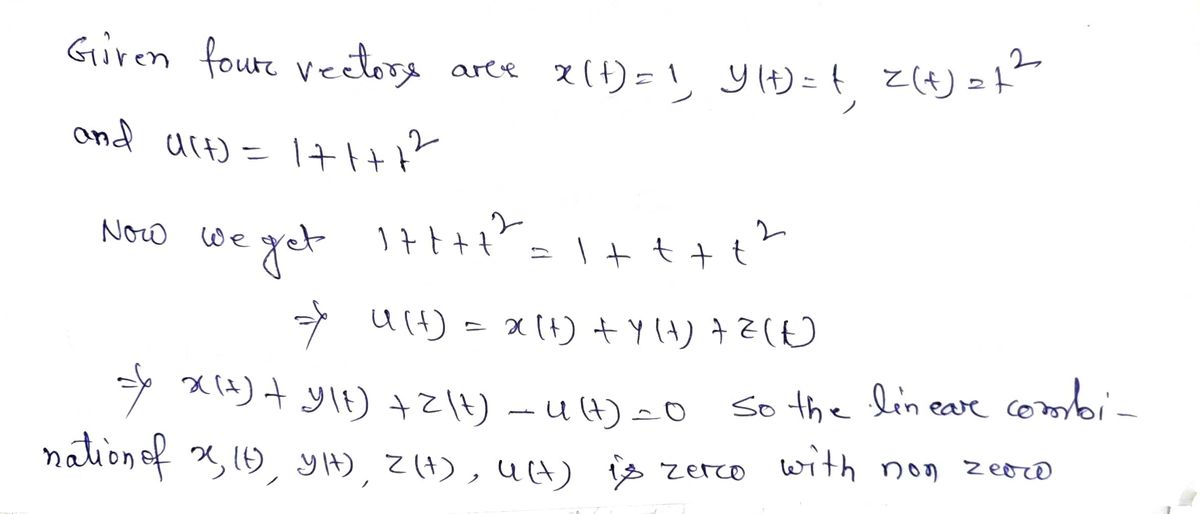 Given four vectors are x(t)=1, y(t)=t, z(t)=t²
and u(t) = 1+t+t²
Now we get 1+t+t² = 1+t+t²
⇒ u(t) = x(t) + y(t) + z(t)
⇒ x(t) + y(t) + z(t) – u(t) = 0 so the linear combi-
nation of x(t), y(t), z(t), u(t) is zero with non zero